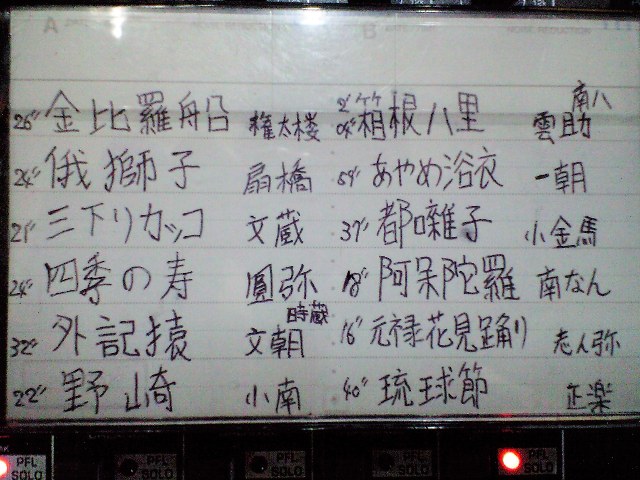 A B
26" 金比羅船 権太楼 2'04" 箱根八里 雲助 南八
24" 俄獅子 扇橋 59" あやめ浴衣 一朝
21" 三下りカッコ 文蔵 37" 都囃子 小金馬
24" 四季の寿 圓弥 18" 阿呆陀羅 南なん
32" 外記猿 文朝 時蔵 16" 元禄花見踊り 老人弥
22" 野崎 小南 40" 琉球節 正楽
PFL SOLO PFL SOLO PFL SOLO PFL SOLO PFL SOLO